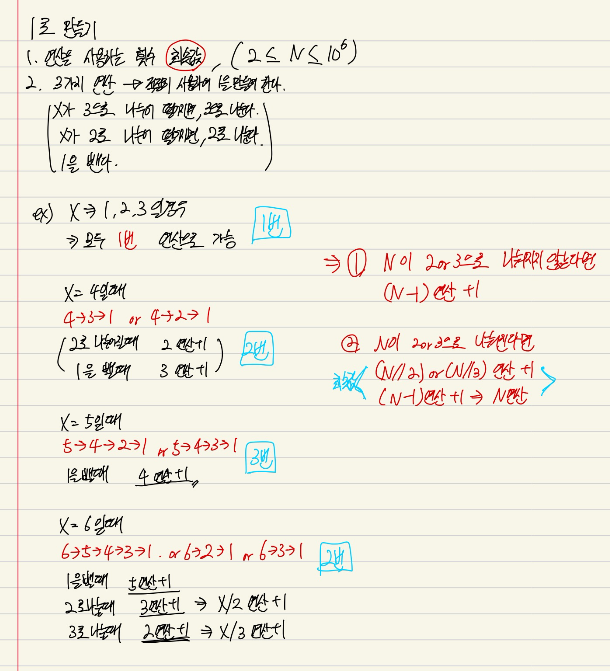 1로 만들기
1. 연산을 사용하는 횟수 최솟값, (2 ≤ N ≤ 10⁶)
2. 3가지 연산 → 적절히 사용하여 1을 만들어야 한다.
X가 3으로 나누어 떨어지면, 3으로 나눈다.
X가 2로 나누어 떨어지면, 2로 나눈다.
1을 뺀다.
ex) X → 1, 2, 3 일경우
⇒ 모두 1번 연산으로 가능
1번
X = 4일때
4→3→1 or 4→2→1
2로 나눠질때 2연산+1
1을 뺄때 3연산+1
2번
X = 5일때
5→4→2→1 or 5→4→3→1
1을뺄때 4연산+1
3번
X = 6일때
6→5→4→3→1. or 6→2→1 or 6→3→1
2번
1을뺄때 5연산+1
2로나눌때 3연산+1 ⇒ X/2 연산+1
3로나눌때 2연산+1 ⇒ X/3 연산+1
⇒ ① N이 2or3으로 나눠지지 않는다면
(N-1) 연산 +1
② N이 2or3으로 나눠진다면
(N//2) or (N//3) 연산 +1
(N-1)연산 +1 → N연산
최솟값